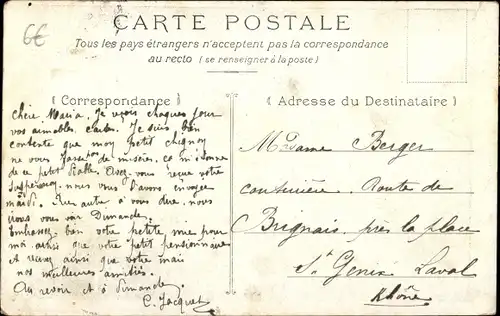 6€
CARTE POSTALE
Tous les pays étrangers n'acceptent pas la correspondance
au recto (se renseigner à la poste)
Correspondance
Adresse du Destinataire
Chère Maria. Je reçois chaques jour
vos aimables cartes. Je suis bien
contente que mon petit chignon
ne vous fasse pas de misères, ça m'étonne
de ce petit diable. Avez vous reçue votre
nous vous l'avons envoyée
mardi. Rien autre à vous dire, nous
irons vous voir Dimanche.
Embrassez bien votre petite mère pour
moi ainsi que votre petit pensionnaire
et recevez ainsi que votre mari
nos meilleures amitiés.
Au revoir et à dimanche
C. Jacquet
Madame Berger
couturière Route de
Brignais près la place
St Genis Laval
Rhône